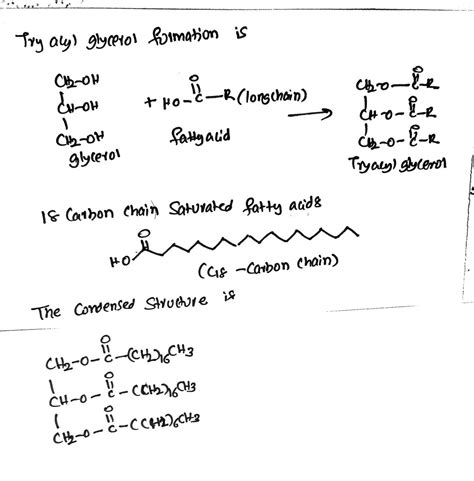 Try acyl glycerol formation is
CH2-OH
CH-OH
CH2-OH
glycerol
+ HO-C-R (longchain)
O
fatty acid
CH2-O-C-R
O
CH-O-C-R
O
CH2-O-C-R
O
Tryacyl glycerol
18 Carbon chain Saturated fatty acids
O
HO
(C18 -Carbon chain)
The Condensed Structure is
O
CH2-O-C-(CH2)16CH3
O
CH-O-C-(CH2)16CH3
O
CH2-O-C-C(CH2)16CH3